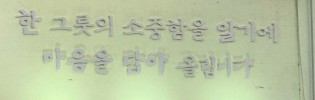 한 그릇의 소중함을 알기에
마음을 담아 올립니다